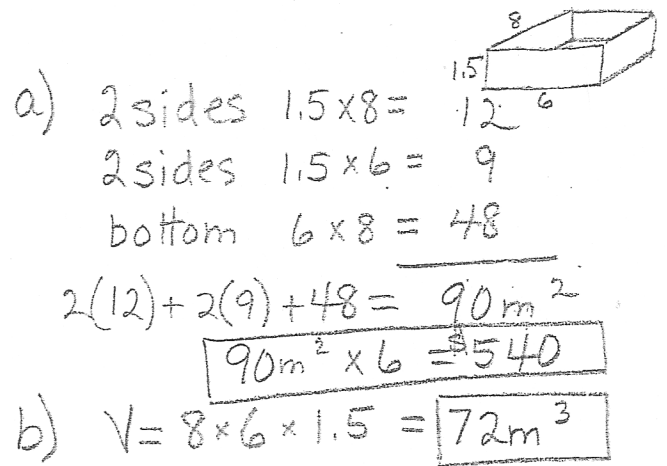 8
1.5
6
a) 2 sides 1.5 x 8 = 12
2 sides 1.5 x 6 = 9
bottom 6 x 8 = 48
2(12) + 2(9) + 48 = 90 m²
90m² x 6 = $540
b) V = 8 x 6 x 1.5 = 72m³